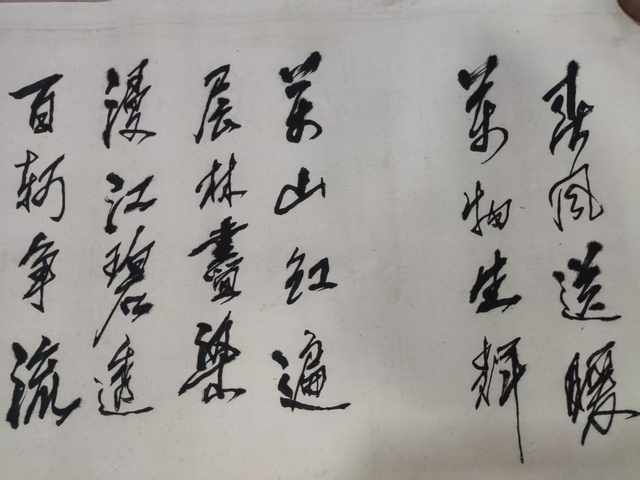 春风送暖
万物生辉
万山红遍
层林尽染
漫江碧透
百舸争流